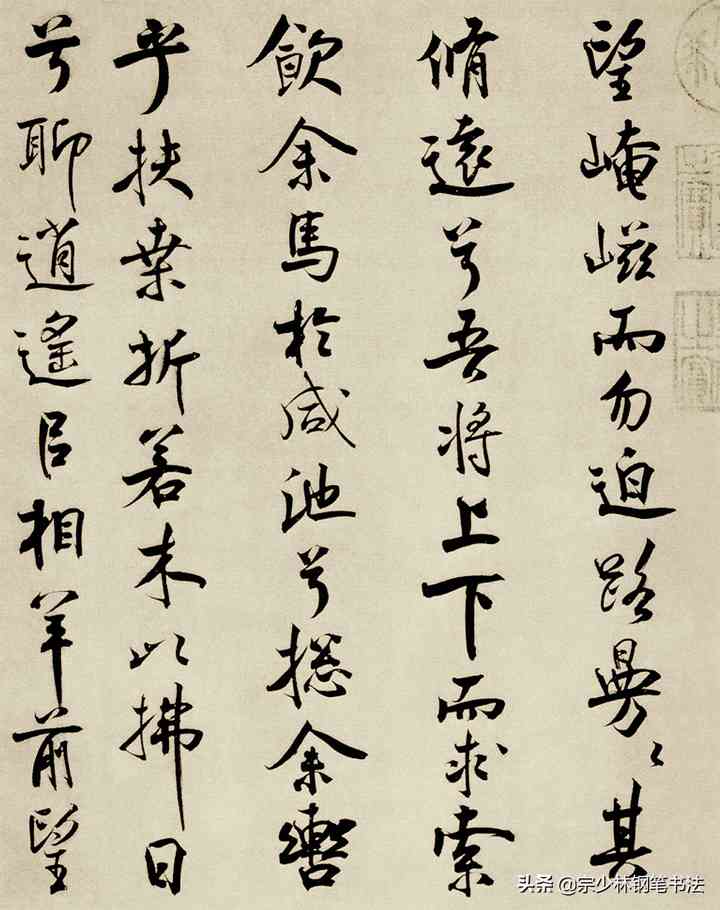 望崦嵫而勿迫路曼〻其
脩遠兮吾将上下而求索
飲余馬於咸池兮摠余轡
乎扶桒折若木以拂日
兮聊逍遥㠯相羊前望
头条 @宗少林钢笔书法